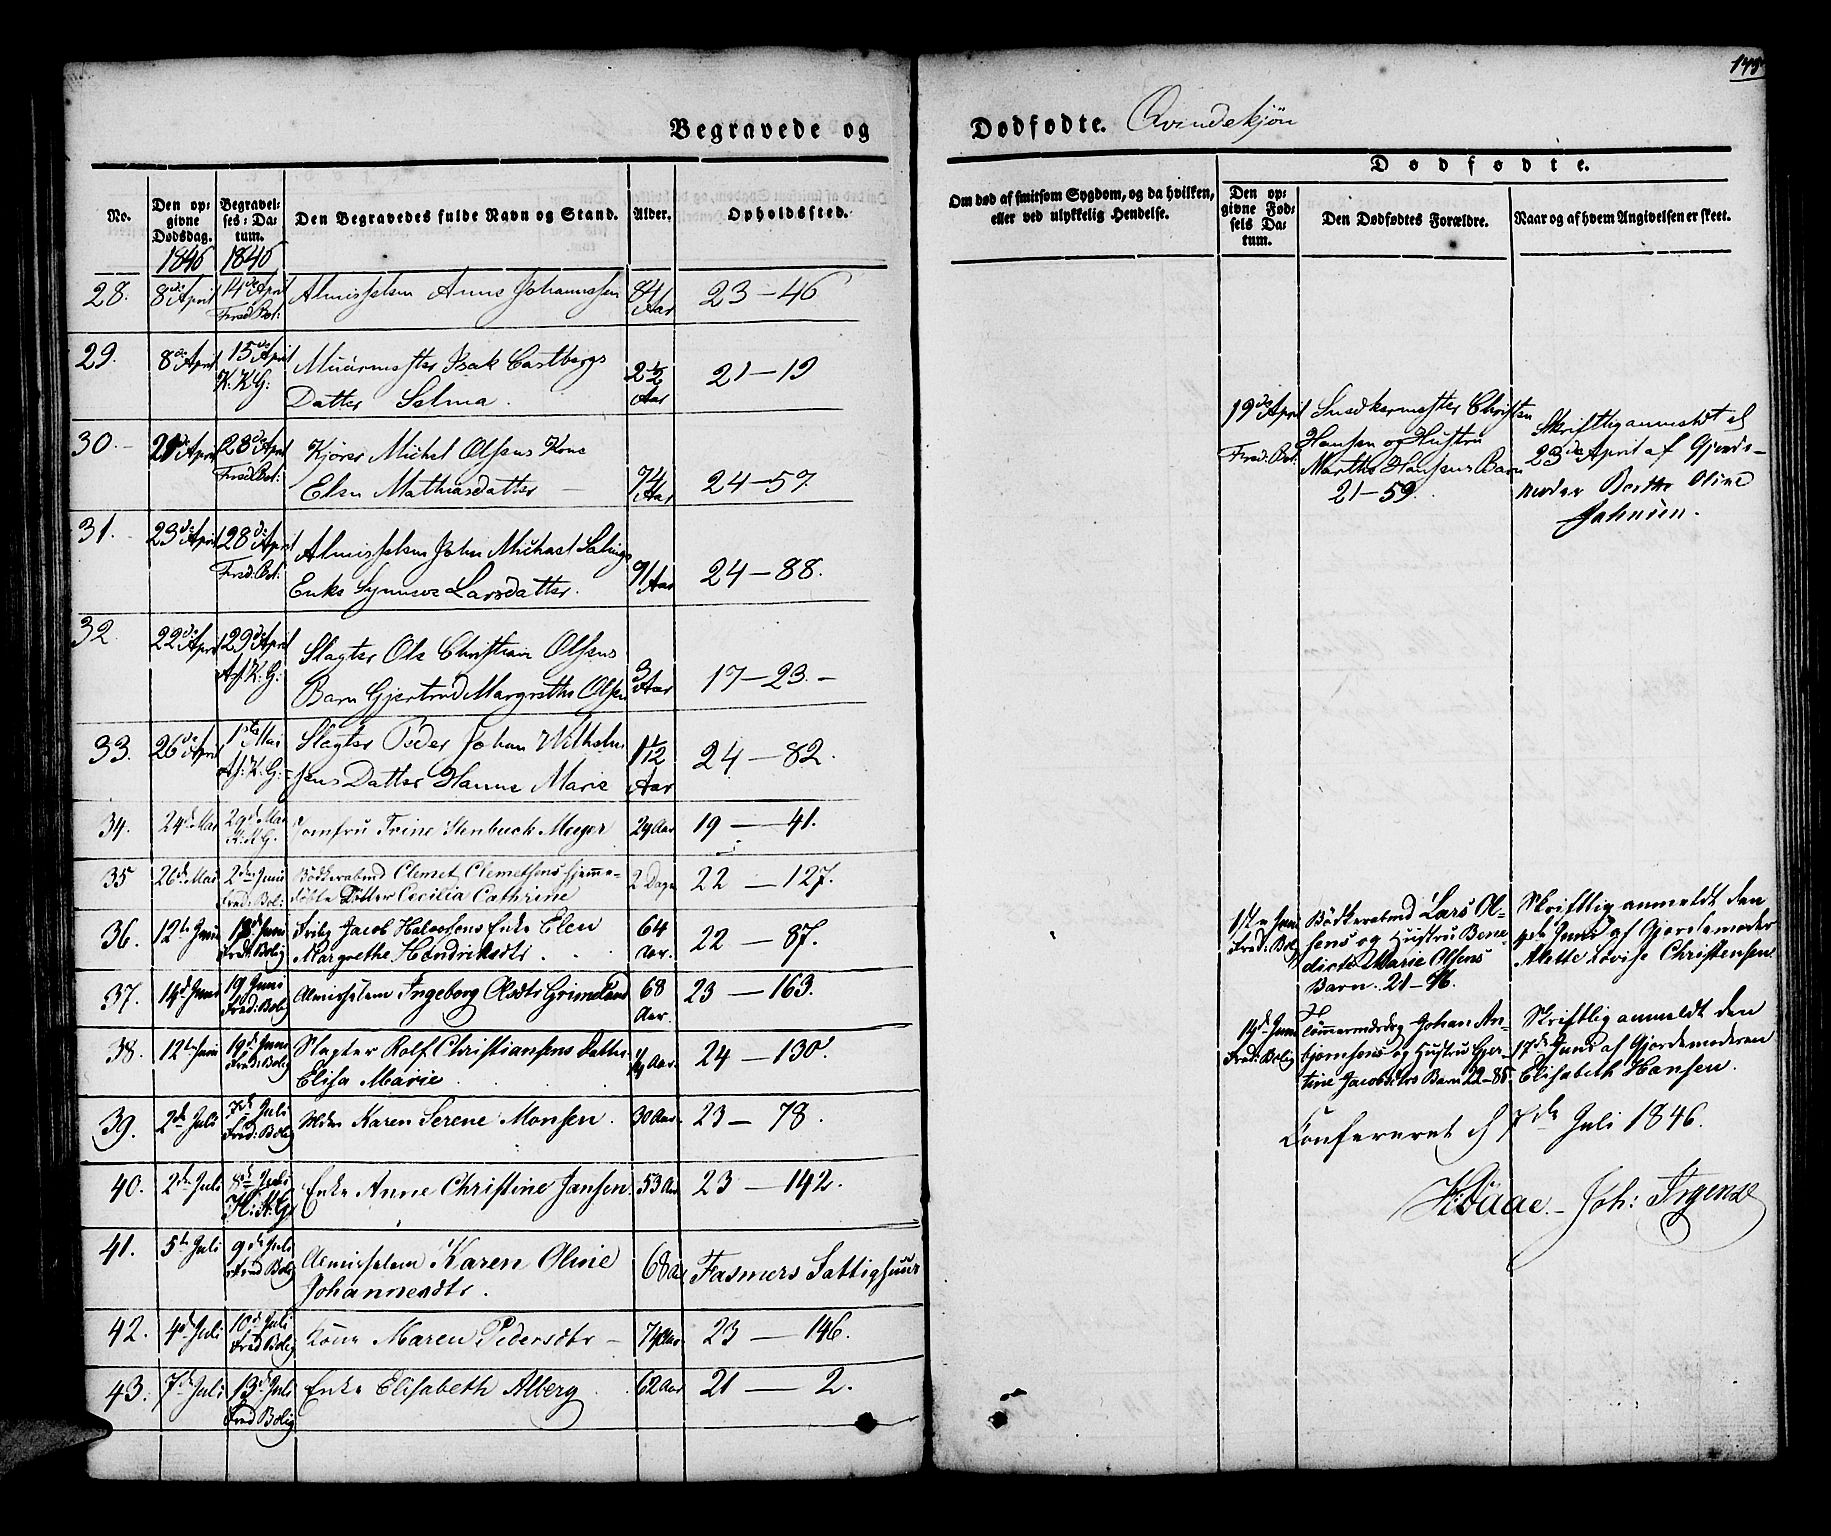 145
Begravede og Dødfødte. Qvindekjøn
No.
Den opgivne Dødsdag. 1846
Begravelses-Datum. 1846
Den Begravedes fulde Navn og Stand.
Alder.
Opholdssted.
Om død af smitsom Sygdom, og da hvilken, eller ved ulykkelig Hendelse.
Dødfødte.
Den opgivne Fødsels Datum.
Den Dødfødtes Forældre.
Naar og af hvem Angivelsen er skeet.
28. 8de April 14de April Fred. Bol: Almisselem Anne Johannesen 84 Aar 23 — 46
29. 8de April 15de April K. K. G: Muurmester Isak Castbergs
Datter Selma. 2½ Aar 21 — 19
30. 21de April 28de April Fred. Bol: Kjører Michel Olsens Kone
Elsn Mathiasdatter — 74 Aar 24 — 57.
31. 23de April 28de April Fred: Bol: Almisselem John Michael
Enke Larsdatter. 91 Aar 24 — 88.
32. 22de April 29de April K. G: Slagter Ole Christian Olsens
Barn Gjertrud Margrethe Olsen 3 Aar 17 — 23. —
33. 26de April 1ste Mai K. G: Slagter Peder Johan Wilhelm
sens Datter Hanne Marie 1 1/12 Aar 24 — 82.
34. 24de Mai 29de Mai Jomfru Trine Stenbuch Meyer 29 Aar 19 — 41.
35 26de Mai 2den Juni Fred: Bol: Bødkersvend Clemet Clemetsens hjemme-
døbte Datter Cecilia Cathrine 2 Dage 22 — 127.
36. 12te Juni 18de Juni Fred: Bolig Jacob Halvorsens Enke Elen
Margrethe Hendriksdtr. 64 Aar. 22 — 87.
37. 14de Juni 19 Juni Fred: Bolig Almisselem Ingeborg Olsdtr Grimeland 68 Aar. 23 — 163.
38. 12te Juni 19de Juni Fred: Bolig Slagter Rolf Christiansens Datter
Elisa Marie Aar. 24 — 130.
39. 2den Juli 7de Juli Fred: Bolig Karen Serene Monsen. 30 Aar. 23 — 78.
40. 2den Juli 8de Juli Enke Anne Christine Jansen. 53 Aar 23 — 142.
41. 5te Juli 9de Juli Fred Bolig Almisselem Karen Oline
Johannesdtr. 68 Aar Fasmers Fattighuus
42. 4de Juli 10de Juli Fred Bolig Kone Maren Pedersdtr — 74 Aar 23 — 146.
43. 7de Juli 13de Juli Fred Bolig Enke Elisabeth Alberg 62 Aar 21 — 2.
19de April Fred. Bol: Snedkermester Christen
Hansen og Hustru
Marthe Hansens Barn
21 — 59.
Skriftlig anmeldt d
23de April af Gjorde-
moder Berthe Oline
Johnsen.
Juni Fred: Bol: Bødkersvend Lars Ol-
sens og Hustru Bene-
dicte Marie Olsens
Barn. 21 —
Skriftlig anmeldt den
Juni af Gjordemoder
Alette Lovise Christensen.
14de Juni Fred: Bolig Tømmermdrg Johan An-
bjørnsens og Hustru Gjer-
tine Jacobsdtrs Barn 22 — 85.
Skriftlig anmeldt den
17de Juni af Gjordemoderen
Elisabeth Hansen.
Confereret d 7de Juli 1846.
Joh: Irgens